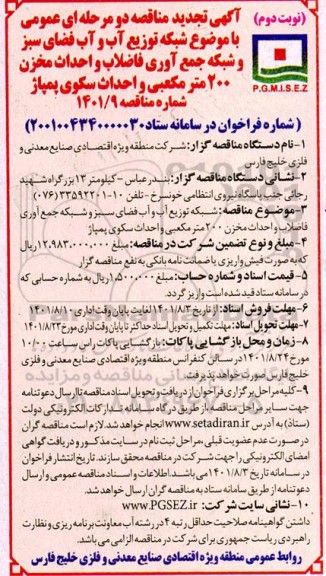 (نوبت دوم)
آگهی تجدید مناقصه دو مرحله ای عمومی
با موضوع شبکه توزیع آب و آب فضای سبز
و شبکه جمع آوری فاضلاب و احداث مخزن
۲۰۰ متر مکعبی و احداث سکوی پمپاژ
شماره مناقصه ۱۴۰۱/۹
P.G.M.I.S.E.Z
(شماره فراخوان در سامانه ستاد ۲۰۰۱۰۰۴۳۴۰۰۰۰۰۳۰)
۱- نام دستگاه مناقصه گزار: شرکت منطقه ویژه اقتصادی صنایع معدنی و
فلزی خلیج فارس
۲- نشانی دستگاه مناقصه گزار: بندرعباس - کیلومتر ۱۳ بزرگراه شهید
رجائی جنب پاسگاه نیروی انتظامی خونسرخ - تلفن ۱۰-۳۳۵۹۲۲۰۱ (۰۷۶)
۳- موضوع مناقصه: شبکه توزیع آب و آب فضای سبز و شبکه جمع آوری
فاضلاب و احداث مخزن ۲۰۰ متر مکعبی و احداث سکوی پمپاژ
۴- مبلغ و نوع تضمین شرکت در مناقصه: مبلغ ۱۲,۹۸۳,۰۰۰,۰۰۰ ریال
که به صورت فیش واریزی یا ضمانت نامه بانکی به نفع مناقصه گزار
۵- قیمت اسناد و شماره حساب: مبلغ ۱,۵۰۰,۰۰۰ ریال به شماره حسابی که
در سامانه ستاد قید شده است واریز گردد.
۶- مهلت فروش اسناد: از تاریخ ۱۴۰۱/۸/۳ لغایت پایان وقت اداری ۱۴۰۱/۸/۱۰
۷- مهلت تحویل اسناد: مهلت تکمیل و تحویل اسناد حداکثر تا پایان وقت اداری مورخ ۱۴۰۱/۸/۲۳
۸- زمان و محل بازگشایی پاکات: بازگشایی پاکات راس ساعت ۱۰/۰۰
مورخ ۱۴۰۱/۸/۲۴ در سالن کنفرانس منطقه ویژه اقتصادی صنایع معدنی و فلزی
خلیج فارس صورت خواهد پذیرفت.
۹- کلیه مراحل برگزاری فراخوان از دریافت و تحویل اسناد مناقصه تا ارسال دعوتنامه
جهت سایر مراحل مناقصه، از طریق درگاه سامانه تدارکات الکترونیکی دولت
(ستاد) به آدرس www.setadiran.ir انجام خواهد شد. لازم است مناقصه گران
در صورت عدم عضویت قبلی، مراحل ثبت نام در سایت مذکور و دریافت گواهی
امضای الکترونیکی را جهت شرکت در مناقصه محقق سازند. تاریخ انتشار فراخوان
در سامانه تاریخ ۱۴۰۱/۸/۳ می باشد. اطلاعات و اسناد مناقصه عمومی و ارسال
دعوتنامه از طریق سامانه ستاد به مناقصه گران ارسال خواهد شد.
۱۰- نشانی سایت شرکت: www.PGSEZ.ir
داشتن گواهینامه صلاحیت حداقل رتبه ۴ در رشته آب معاونت برنامه ریزی و نظارت
راهبردی ریاست جمهوری برای شرکت در مناقصه الزامی می باشد.
روابط عمومی منطقه ویژه اقتصادی صنایع معدنی و فلزی خلیج فارس